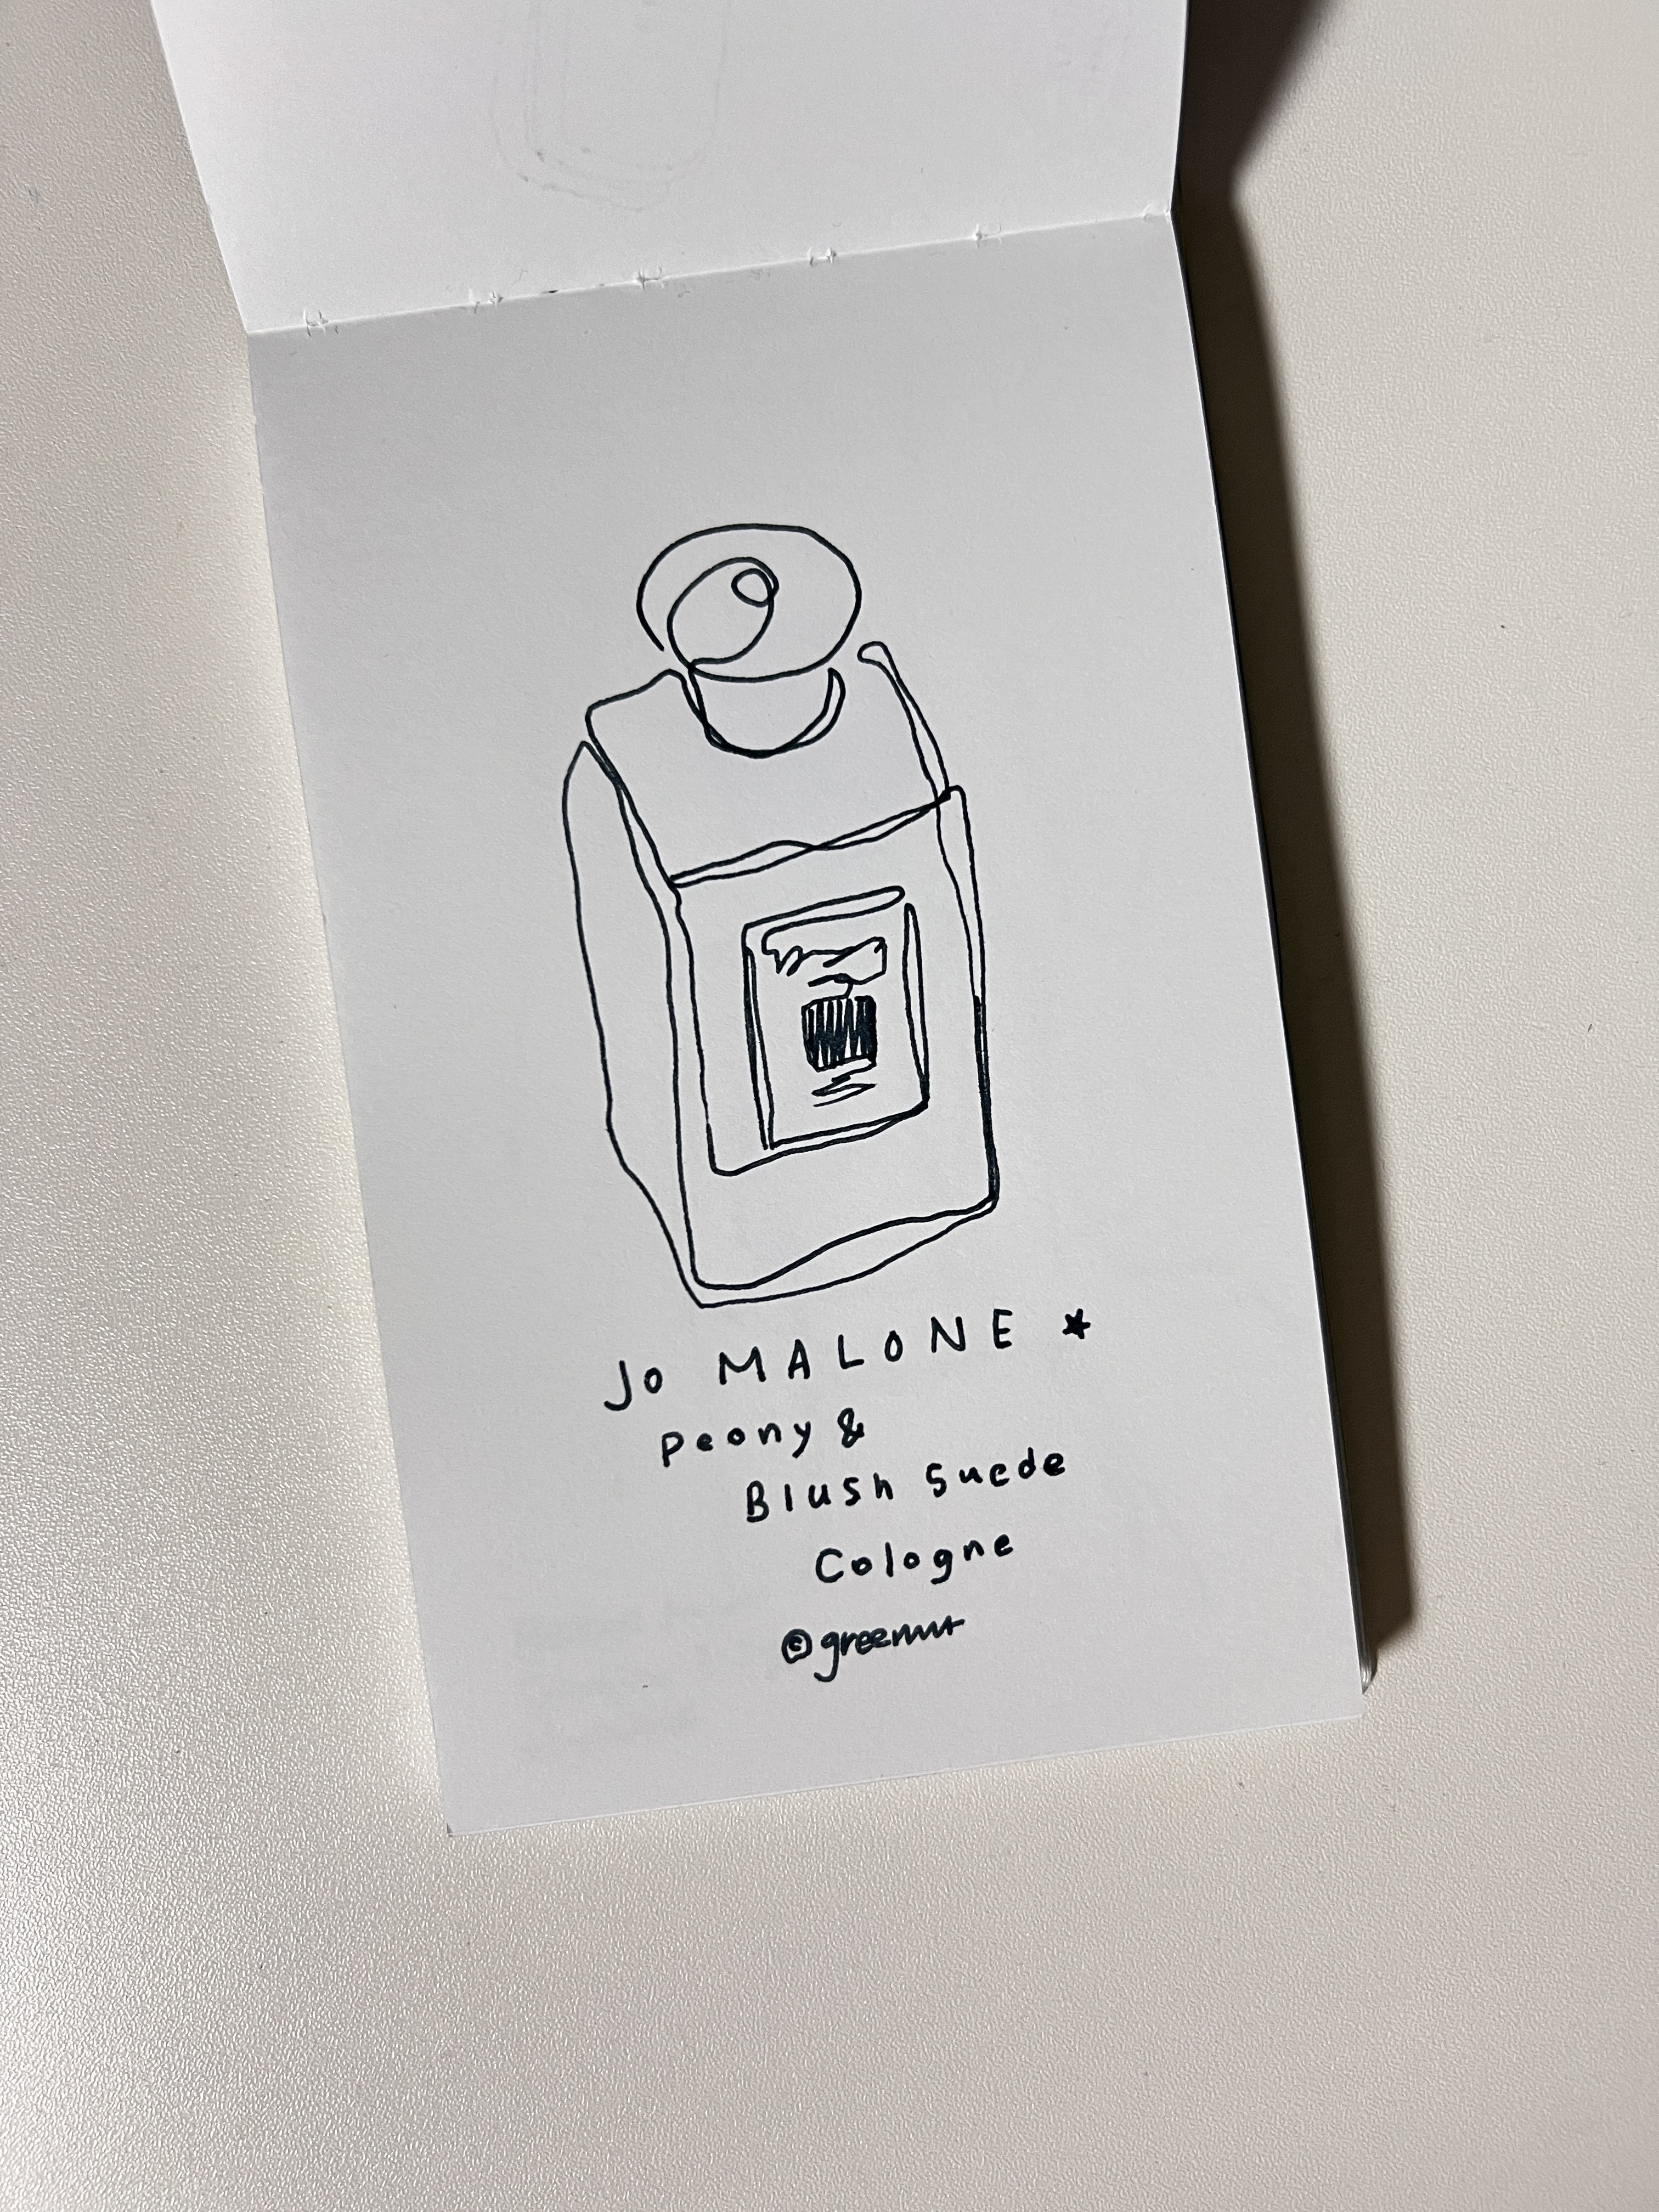 Jo MALONE *
Peony &
Blush Suede
Cologne